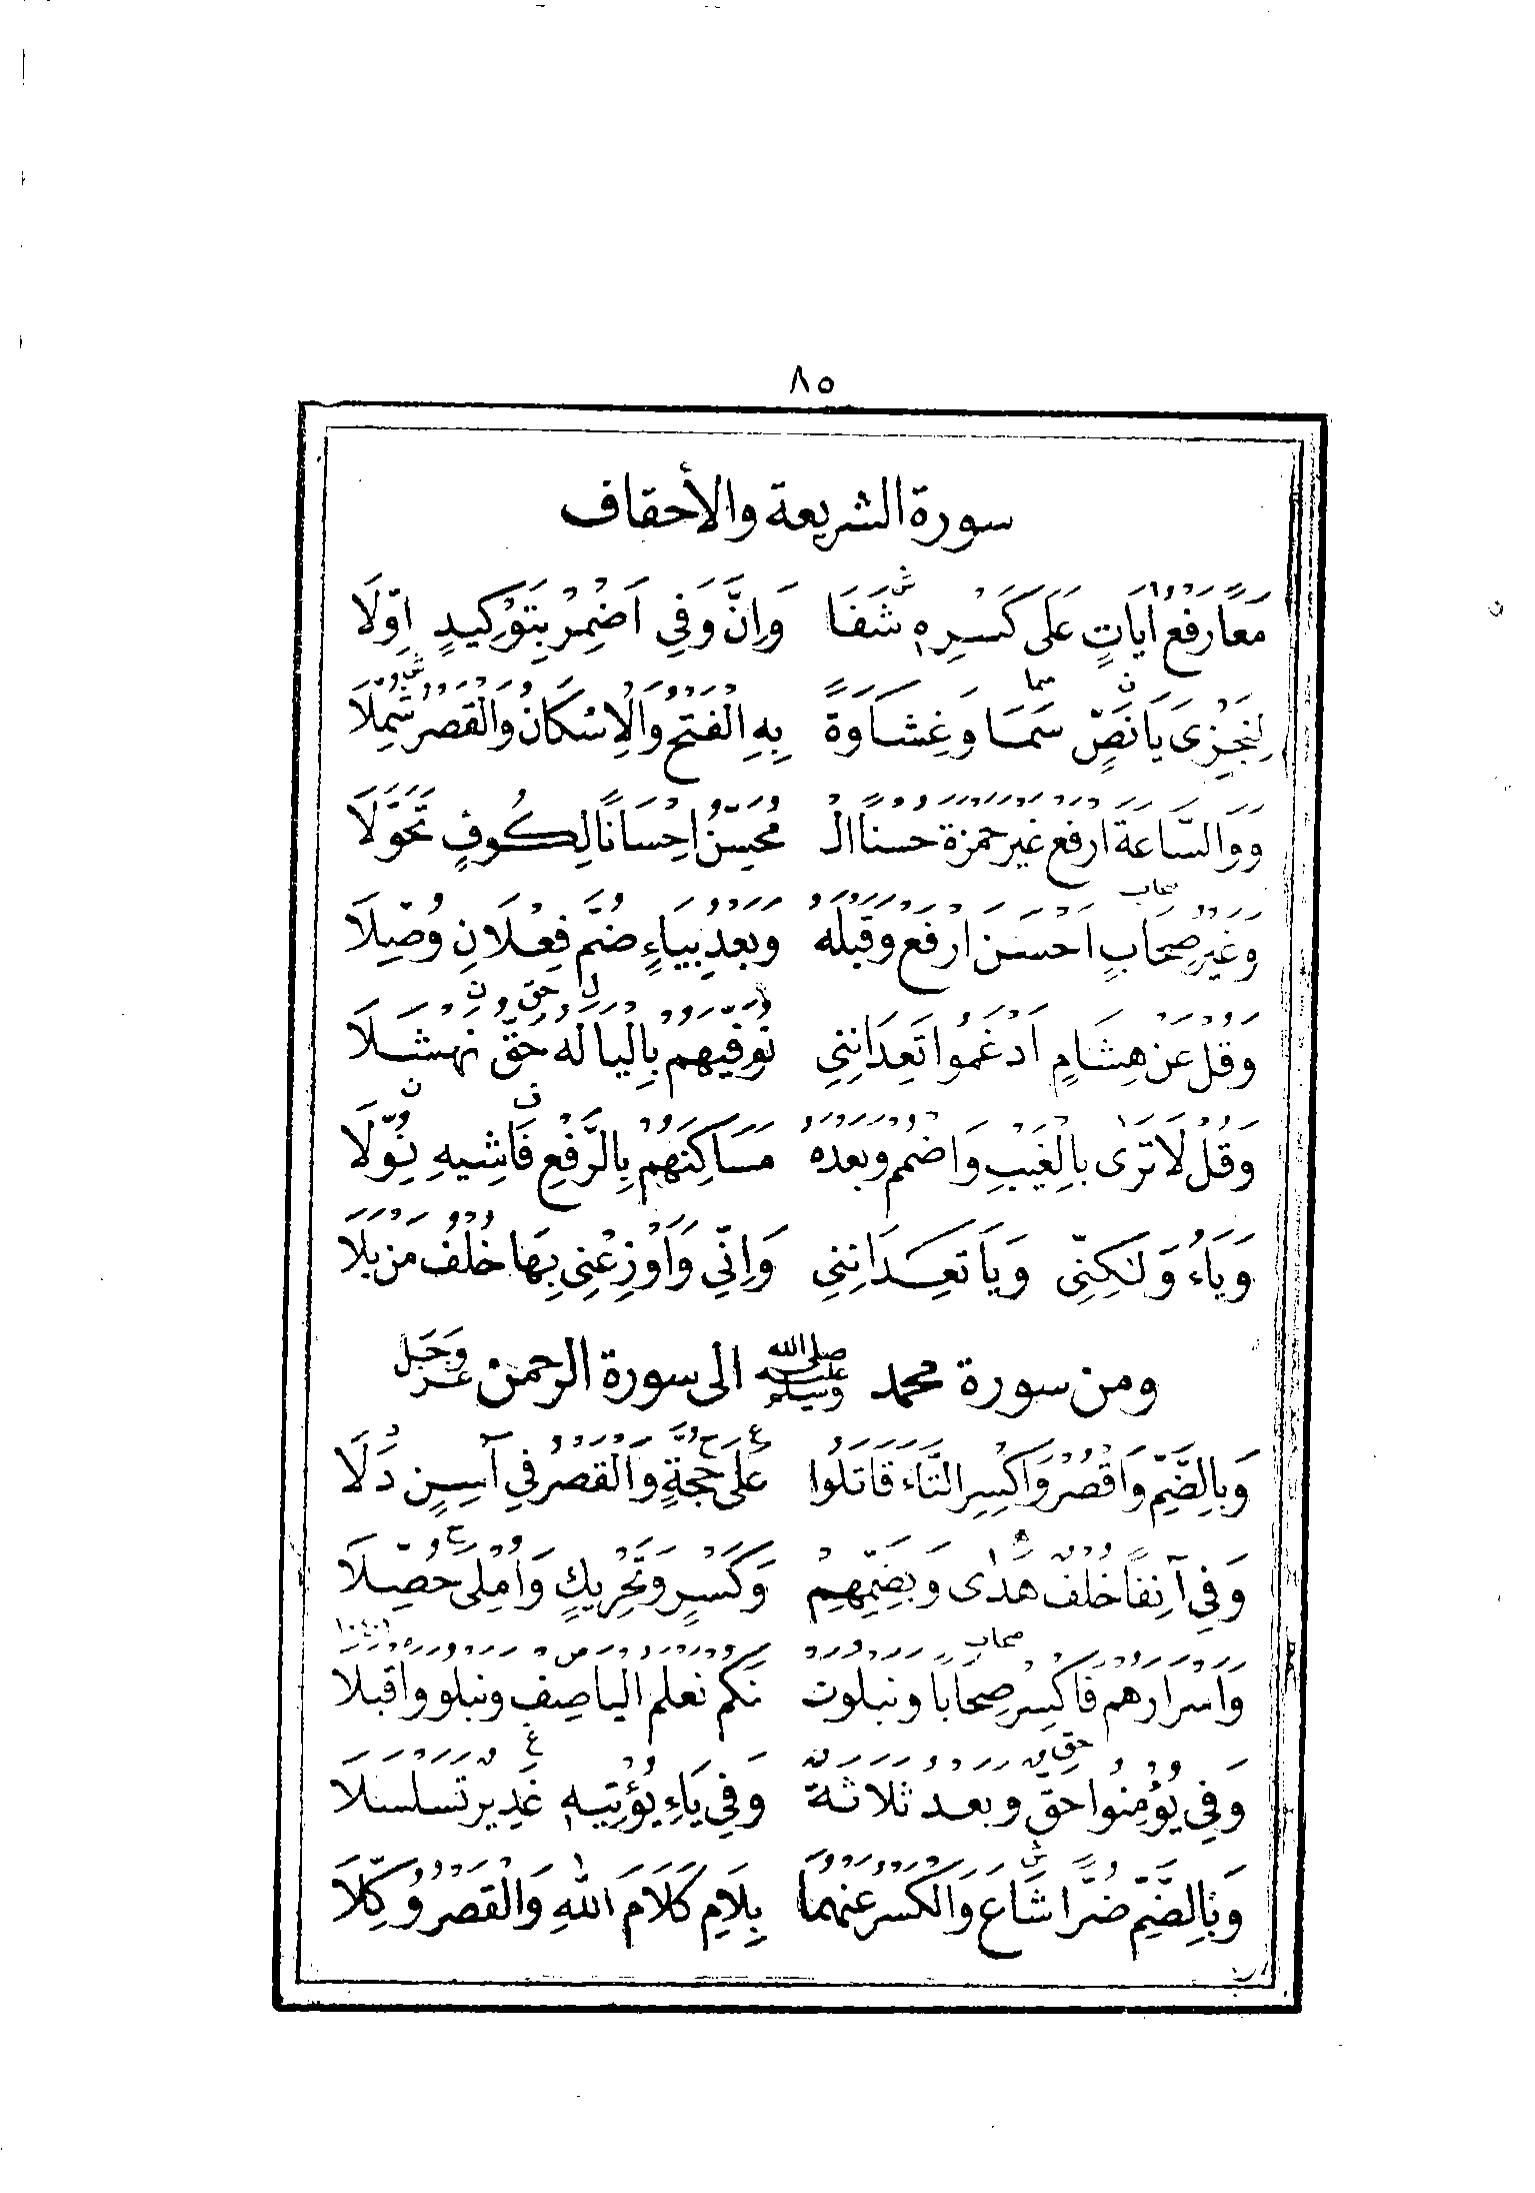 ٨٥
سورة الشريعة والأحقاف
مَعًا رَفْعُ اٰيَاتٍ عَلَى كَسْرِهِ شَفَا وَاِنَّ وَفِي اَضْمِرْ بِتَوْكِيدٍ اِوِّلَا
لِنَجْزِىَ يَا نَصٍّ سَمَا وَغِشَاوَةً بِهِ الْفَتْحُ وَالْاِسْكَانُ وَالْقَصْرُ شُمِّلَا
وَوَالسَّاعَةَ ارْفَعْ غَيْرَ حَمْزَةَ حُسْنًا الْـ مُحَسِّنُ اِحْسَانًا لِكُوفٍ تَحَوَّلَا
وَغَيْرُ صِحَابٍ اَحْسَنَ ارْفَعْ وَقَبْلَهُ وَبَعْدُ بِيَاءٍ ضُمَّ فِعْلَانِ وُصِّلَا
وَقُلْ عَنْ هِشَامٍ اَدْغَمُوا تَعِدَانِنِي نُوَفِّيَهُمْ بِالْيَا لَهُ حَقُّ نَهْشَلَا
وَقُلْ لَا تَرٰى بِالْغَيْبِ وَاضْمُمْ وَبَعْدَهُ مَسَاكِنَهُمْ بِالرَّفْعِ فَاشِيهِ نُوِّلَا
وَيَاءُ وَلٰكِنِّى وَيَا تَعِدَانِنِي وَاِنِّي وَاَوْزِعْنِي بِهَا خُلْفُ مَنْ بَلَا
ومن سورة محمد صلى الله عليه وسلم الى سورة الرحمن عَزَّ وَجَلَّ
وَبِالضَّمِّ وَاقْصُرْ وَاكْسِرِ التَّاءَ قَاتَلُوا عَلَى حُجَّةٍ وَالْقَصْرُ فِي آسِنٍ دَلَا
وَفِي آنِفًا خُلْفٌ هَدٰى وَبِضَمِّهِمْ وَكَسْرٍ وَتَحْرِيكٍ وَاُمْلِىَ حُصِّلَا
صحاب
وَاَسْرَارَهُمْ فَاكْسِرْ صِحَابًا وَنَبْلُوَنْ نَكُمْ نَعْلَمَ الْيَا صِفْ وَنَبْلُوَ وَاقْبَلَا
وَفِي يُؤْمِنُوا حَقٌّ وَبَعْدُ ثَلَاثَةٌ وَفِي يَاءِ يُؤْتِيهِ غَدِيرٌ تَسَلْسَلَا
وَبِالضَّمِّ ضُرًّا شَاعَ وَالْكَسْرُ عَنْهُمَا بِلَامِ كَلَامَ اللّٰهِ وَالْقَصْرُ وُكِّلَا